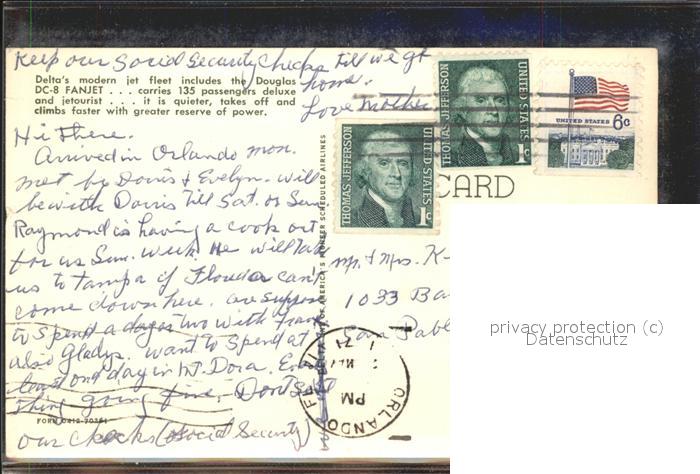 Keep our Social Security Checks till we gt
home.
Love Mother
Delta's modern jet fleet includes the Douglas
DC-8 FANJET . . . carries 135 passengers deluxe
and jetourist . . . it is quieter, takes off and
climbs faster with greater reserve of power.
Hi There.
Arrived in Orlando mon.
met by Doris & Evelyn. will
be with Doris Till Sat. or Sun
Raymond is having a cook out
for us Sun. week He will take
us to Tampa if Flouda can't
come down here. are suppose
to spend a day or two with
also Gladys. want to spend at
least one day in Mt. Dora. Every
thing going fine. Don't sent
our checks (social Security)
FORM 0412-70251
OF AMERICA'S PIONEER SCHEDULED AIRLINES
THOMAS JEFFERSON
UNITED STATES
1c
THOMAS JEFFERSON
UNITED STATES
1c
UNITED STATES
6c
CARD
Mr. & Mrs. K-
1033 Ba
Pabl
ORLANDO
PM
privacy protection (c)
Datenschutz